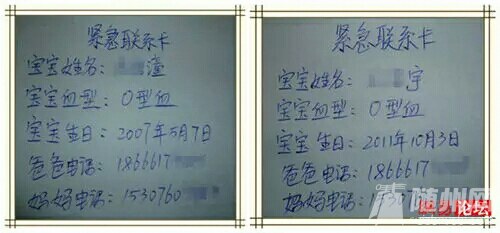 紧急联系卡
宝宝姓名：潼
宝宝血型：O型血
宝宝生日：2007年5月7日
爸爸电话：1866617
妈妈电话：1530760
紧急联系卡
宝宝姓名：宇
宝宝血型：O型血
宝宝生日：2011年10月3日
爸爸电话：1866617
妈妈电话：
随州网
论坛